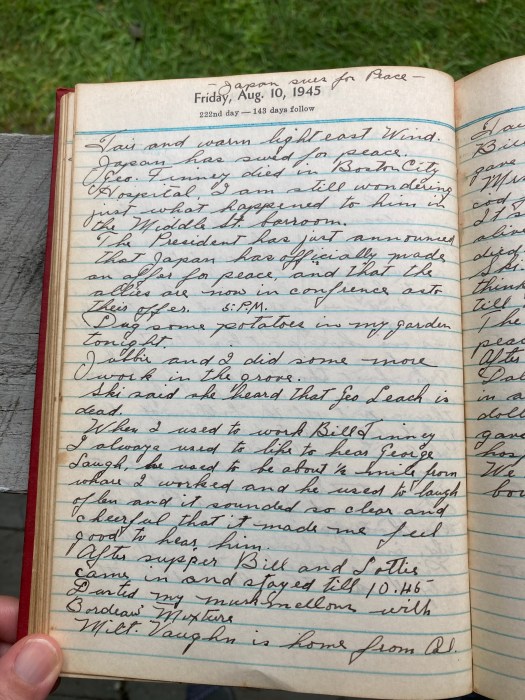 - Japan sues for Peace -
Friday, Aug. 10, 1945
222nd day — 143 days follow
Fair and warm light east Wind.
Japan has sued for peace.
Geo. Finney died in Boston City
Hospital. I am still wondering
just what happened to him in
the Middle St. barroom.
The President has just announced
that Japan has officially made
an offer for peace and that the
allies are now in confrence as to
their offer. 5: P.M.
Dug some potatoes in my garden
tonight.
and I did some more
work in the grove.
Ski said she heard that Geo Leach is
dead.
When I used to work Bill Finney
I always used to like to hear George
laugh, he used to be about ½ mile from
whare I worked and he used to laugh
often and it sounded so clear and
cheerful that it made me feel
good to hear him.
After supper Bill and Lottie
came in and stayed till 10:45
Dusted my mushmellons with
Bordeaux Mixture
Milt. Vaughn is home from
Fair
Bill
gave
Mrs
cod
It's
died
Ski
think
till
The
peac
After
in a
doll
gave
hos
We